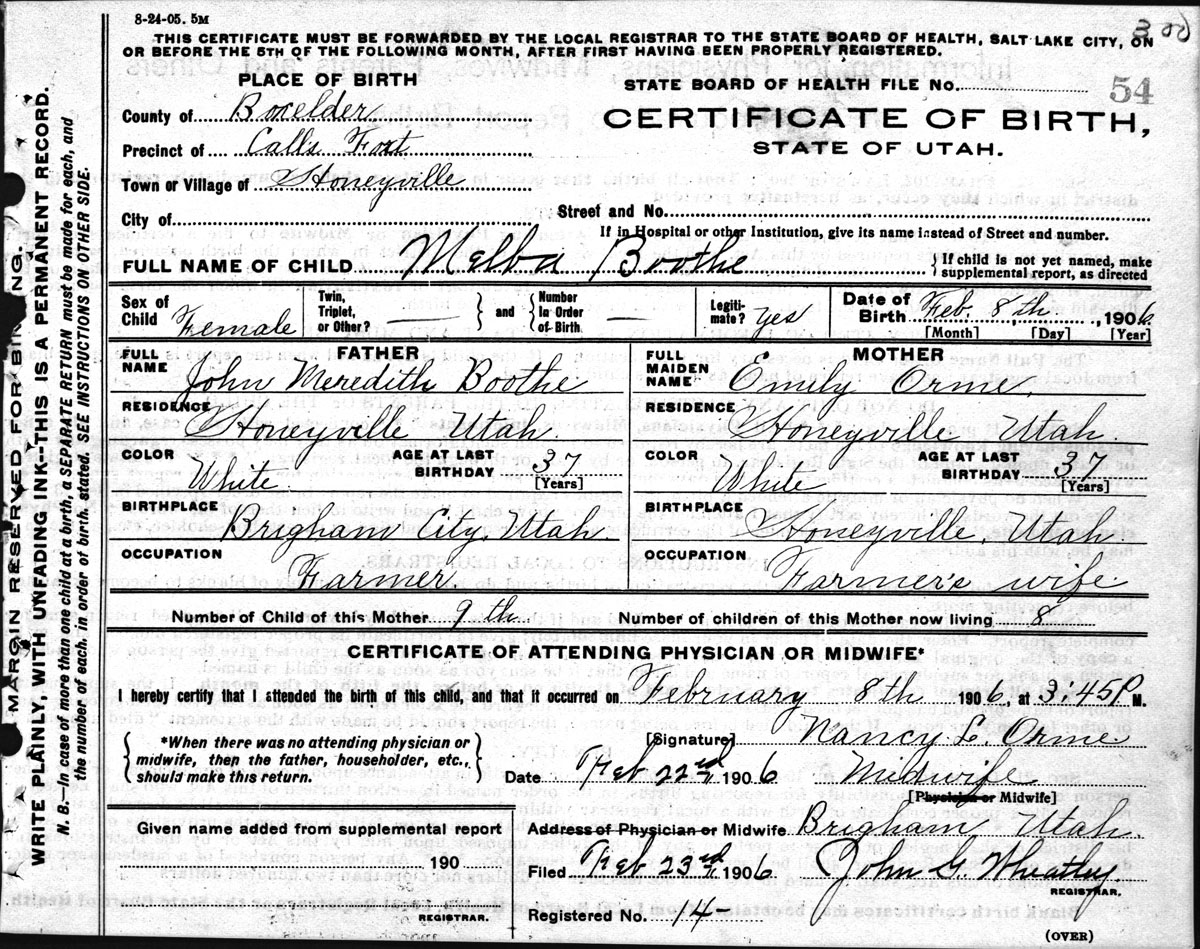 8-24-05. 5M
300
THIS CERTIFICATE MUST BE FORWARDED BY THE LOCAL REGISTRAR TO THE STATE BOARD OF HEALTH, SALT LAKE CITY, ON
OR BEFORE THE 5TH OF THE FOLLOWING MONTH, AFTER FIRST HAVING BEEN PROPERLY REGISTERED.
PLACE OF BIRTH
STATE BOARD OF HEALTH FILE No. 54
County of Boxelder
CERTIFICATE OF BIRTH,
Precinct of Calls Fort
STATE OF UTAH.
Town or Village of Honeyville
City of
Street and No.
If in Hospital or other Institution, give its name instead of Street and number.
FULL NAME OF CHILD Melba Boothe { If child is not yet named, make
supplemental report, as directed
Sex of Child Female
Twin, Triplet, or Other? —
} and { Number In Order of Birth —
Legitimate? yes
Date of Birth Feb. 8,th, 1906
[Month] [Day] [Year]
FATHER
FULL NAME John Meredith Boothe
RESIDENCE Honeyville Utah.
COLOR White.
AGE AT LAST BIRTHDAY 37 [Years]
BIRTHPLACE Brigham City, Utah.
OCCUPATION Farmer.
MOTHER
FULL MAIDEN NAME Emily Orme.
RESIDENCE Honeyville Utah.
COLOR White
AGE AT LAST BIRTHDAY 37 [Years]
BIRTHPLACE Honeyville, Utah
OCCUPATION Farmer's wife
Number of Child of this Mother 9th. Number of children of this Mother now living 8
CERTIFICATE OF ATTENDING PHYSICIAN OR MIDWIFE*
I hereby certify that I attended the birth of this child, and that it occurred on February 8th 1906, at 3.45 P M.
{ *When there was no attending physician or
midwife, then the father, householder, etc.,
should make this return. }
[Signature] Nancy E. Orme
Date Feb 22nd 1906 Midwife
[Physician or Midwife]
Given name added from supplemental report
190
REGISTRAR.
Address of Physician or Midwife Brigham, Utah.
Filed Feb 23rd 1906 John G. Wheatley
REGISTRAR.
Registered No. 14
(OVER)
MARGIN RESERVED FOR BINDING.
WRITE PLAINLY, WITH UNFADING INK—THIS IS A PERMANENT RECORD.
N. B.—In case of more than one child at a birth, a SEPARATE RETURN must be made for each, and
the number of each, in order of birth, stated. SEE INSTRUCTIONS ON OTHER SIDE.